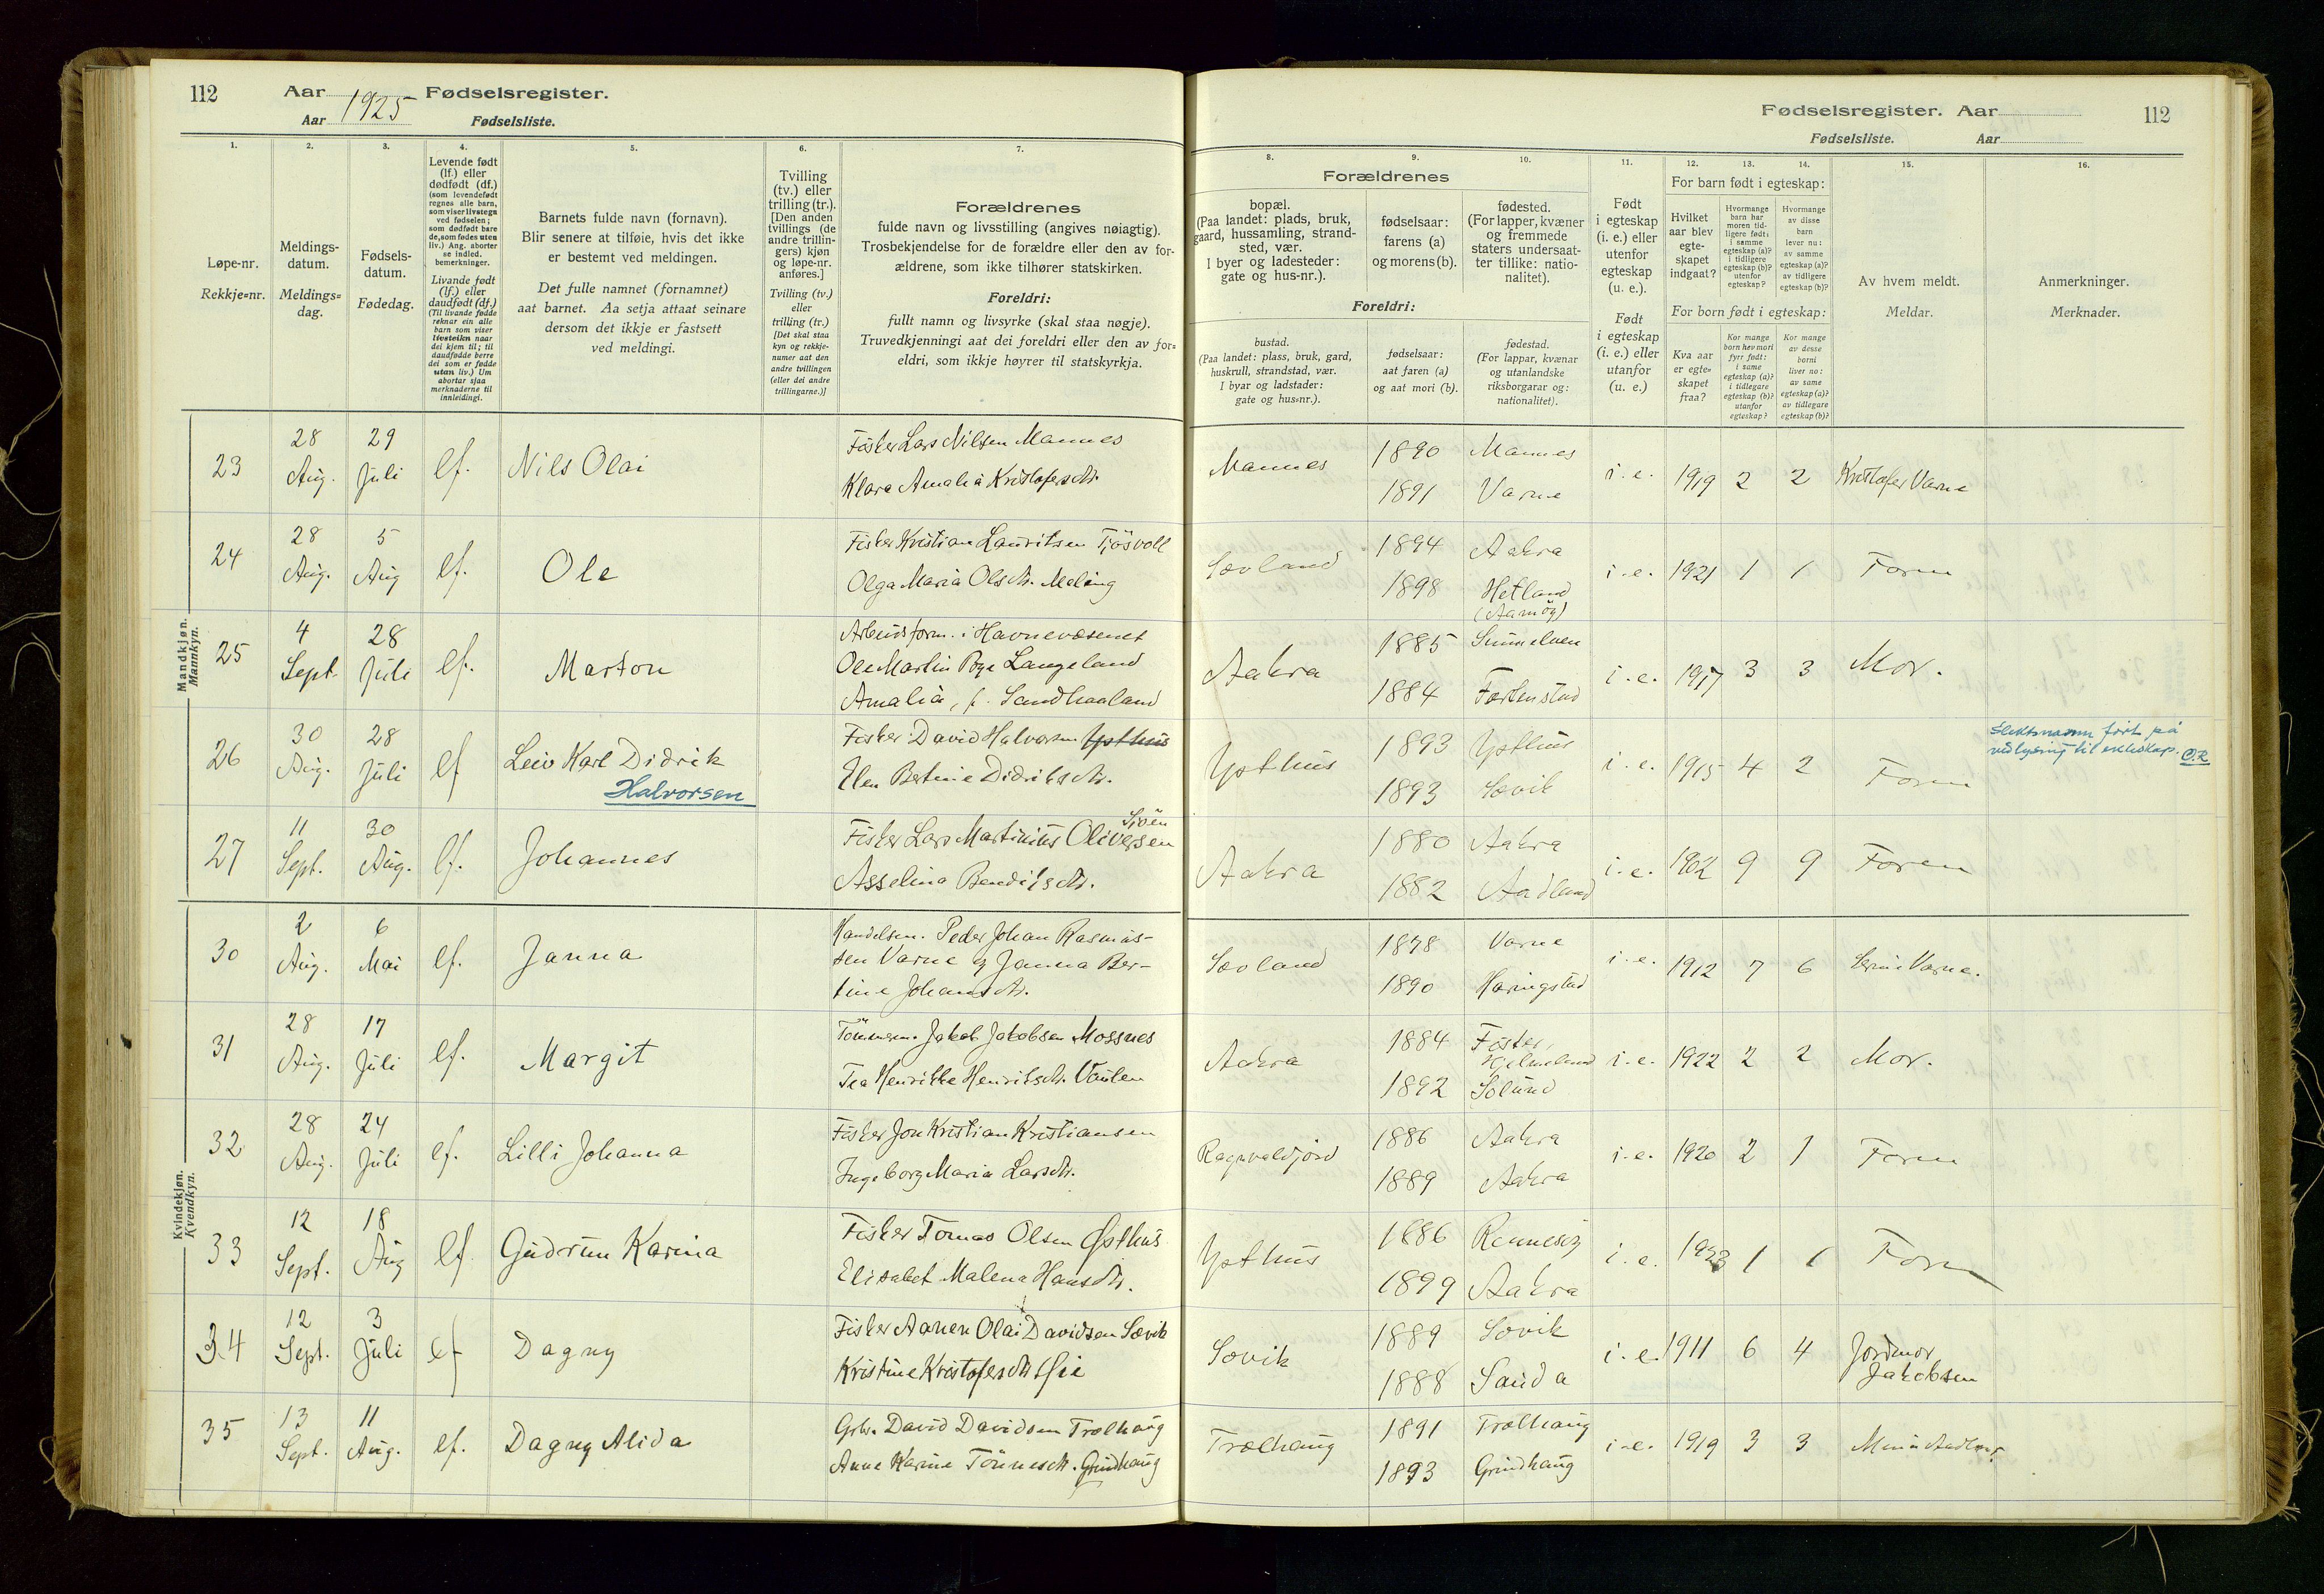 112 Aar 1925 Fødselsregister.
Aar Fødselsliste.
1. 2. 3. 4. 5. 6. 7.
Løpe-nr.
Rekkje=nr.
Meldings-
datum.
Meldings=
dag.
Fødsels-
datum.
Fødedag.
Levende født
(lf.) eller
dødfødt (df.)
(som levendefødt
regnes alle barn,
som viser livstegn
ved fødselen;
som dødfødt bare
de, som fødes uten
liv.) Ang. aborter
se indled.
bemerkninger.
Livande født
(lf.) eller
daudfødt (df.)
(Til livande fødde
reknar ein alle
barn som viser
livsteikn naar
dei kjem til; til
daudfødde berre
dei som er fødde
utan liv.) Um
abortar sjaa
merknaderne til
innleidingi.
Barnets fulde navn (fornavn).
Blir senere at tilføie, hvis det ikke
er bestemt ved meldingen.
Det fulle namnet (fornamnet)
aat barnet. Aa setja attaat seinare
dersom det ikkje er fastsett
ved meldingi.
Tvilling
(tv.) eller
trilling (tr.).
[Den anden
tvillings (de
andre trillin-
gers) kjøn
og løpe-nr.
anføres.]
Tvilling (tv.)
eller
trilling (tr.)
[Det skal staa
kyn og rekkje-
numer aat den
andre tvillingen
(eller dei andre
trillingarne.)]
Forældrenes
fulde navn og livsstilling (angives nøiagtig).
Trosbekjendelse for de forældre eller den av for-
ældrene, som ikke tilhører statskirken.
Foreldri:
fullt namn og livsyrke (skal staa nøgje).
Truvedkjenningi aat dei foreldri eller den av for=
eldri, som ikkje høyrer til statskyrkja.
Fødselsregister. Aar 112
Fødselsliste. Aar
8. 9. 10. 11. 12. 13. 14. 15. 16.
Forældrenes
bopæl.
(Paa landet: plads, bruk,
gaard, hussamling, strand-
sted, vær.
I byer og ladesteder:
gate og hus-nr.).
fødselsaar:
farens (a)
og morens (b).
fødested.
(For lapper, kvæner
og fremmede
staters undersaat-
ter tillike: natio-
nalitet).
Foreldri:
bustad.
(Paa landet: plass, bruk, gard,
huskrull, strandstad, vær.
I byar og ladstader:
gate og hus=nr.).
fødselsaar:
aat faren (a)
og aat mori (b).
fødestad.
(For lappar, kvænar
og utanlandske
riksborgarar og:
nationalitet).
Født
i egteskap
(i. e.) eller
utenfor
egteskap
(u. e.).
Født
i egteskap
(i. e.) eller
utanfor
(u. e.)
For barn født i egteskap:
Hvilket
aar blev
egte-
skapet
indgaat?
Hvormange
barn har
moren tid-
ligere født:
i samme
egteskap (a)?
i tidligere
egteskap (b)?
utenfor
egteskap?
Hvormange
av disse
barn
lever nu:
av samme
egteskap (a)?
av tidligere
egteskap (b)?
For born født i egteskap:
Kva aar
er egte=
skapet
fraa?
Kor mange
born hev mori
fyrr født:
i same
egteskap (a)?
i tidlegare
egteskap (b)?
utanfor
egteskap?
Kor mange
av desse
borni
liver no:
av same
egteskap (a)?
av tidlegare
egteskap (b)?
Av hvem meldt.
Meldar.
Anmerkninger.
Merknader.
Mandkjøn.
Mannkyn.
23 28 Aug. 29 Juli lf. Nils Olai
Fisker Lars Nilsen Mannes
Klara Amalia Kristofersdtr.
Mannes 1890 Mannes
1891 Varne
i. e. 1919 2 2 Kristofer Varne
24 28 Aug. 5 Aug lf. Ole
Fisker Kristian Lauritsen Tjösvoll
Olga Maria Olsdtr. Meling
Sævland 1894 Aakra
1898 Hetland
i. e. 1921 1 1 Faren
25 4 Sept. 28 Juli lf. Marton
Arbeidsform. i Havnevæsenet
Ole Martin Langeland
Amalia, f. Sandhaaland
Aakra 1885
1884
i. e. 1917 3 3 Mor.
26 30 Aug. 28 Juli lf Leiv Karl Didrik
Halvorsen
Fisker David Halvorsen Ypthus
Elen Bertine Didriksdtr.
Ypthus 1893 Ypthus
1893 Sævik
i. e. 1915 4 2 Faren
Slektsnamn ført på
vidlysning til ekteskap. O.R
27 11 Sept. 30 Aug. lf. Johannes
Fisker Lars Martinius Oliversen
Asselina Bendiksdtr.
Aakra 1880 Aakra
1882 Aadland
i. e. 1902 9 9 Faren
Kvindekjøn.
Kvendkyn.
30 2 Aug. 6 Mai lf. Janna
Handelsm. Peder Johan Rasmus-
sen Varne og Janna Ber-
tine Johansdtr.
Sævland 1878 Varne
1890 Haringstad
i. e. 1912 7 6 Varne.
31 28 Aug. 17 Juli lf. Margit
Tömmerm. Jakob Jakobsen Mossnes
Tea Henrikke Henriksdtr.
Aakra 1884 Hjelmeland
1892 Solund
i. e. 1922 2 2 Mor.
32 28 Aug. 24 Juli lf. Lilli Johanna
Fisker Jon Kristian Kristiansen
Ingeborg Maria Larsdtr.
Ragnvaldjord 1886 Aakra
1889 Aakra
i. e. 1920 2 1 Faren
33 12 Sept. 18 Aug lf Gudrun Karina
Fisker Tomas Olsen Ypthus
Elisabet Malena Hansdtr.
Ypthus 1886 Rennesöy
1899 Aakra
i. e. 1923 1 1 Faren
34 12 Sept. 3 Juli lf Dagny
Fisker Aanen Olai Davidsen Sævik
Kristine Kristofersdtr Öie
Sævik 1889 Sævik
1888 Sauda
i. e. 1911 6 4 Jordmor
Jakobsen
35 13 Sept. 11 Aug. lf. Dagny Alida
Grbr. David Davidsen Trælhaug
Anne Karine Tönnesdtr. Grindhaug
Trælhaug 1891 Trælhaug
1893 Grindhaug
i. e. 1919 3 3